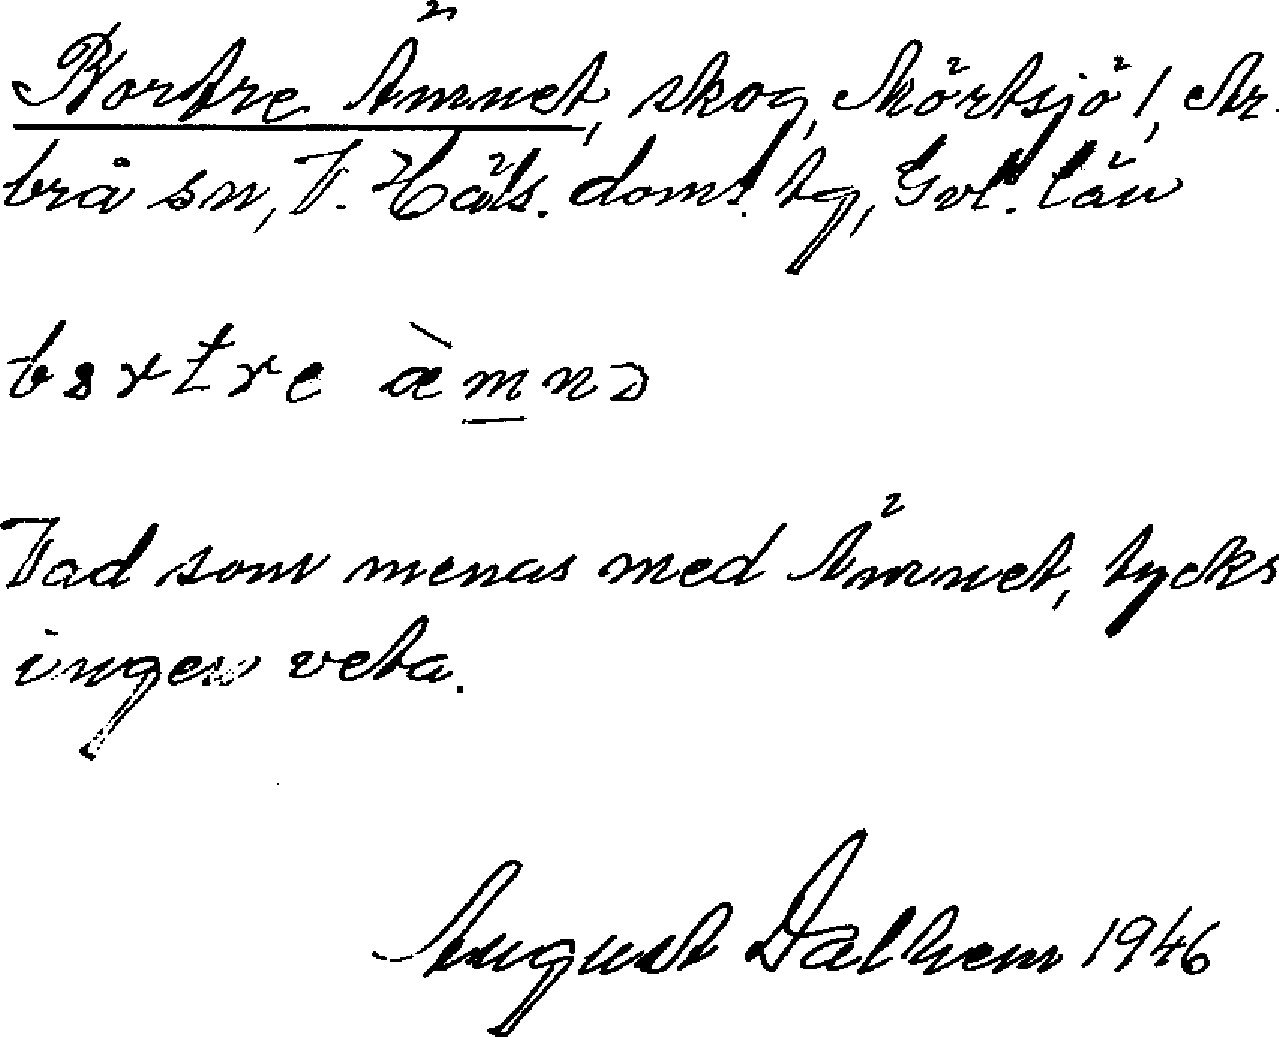 Bortre Ämnet, skog, Mörtsjö l, Ar-
brå sn, V. Häls. doms. tg, Gvl. län
bsrtre æ̀mnɔ
Vad som menas med Ämnet, tycks
ingen veta.
August Dalhem 1946